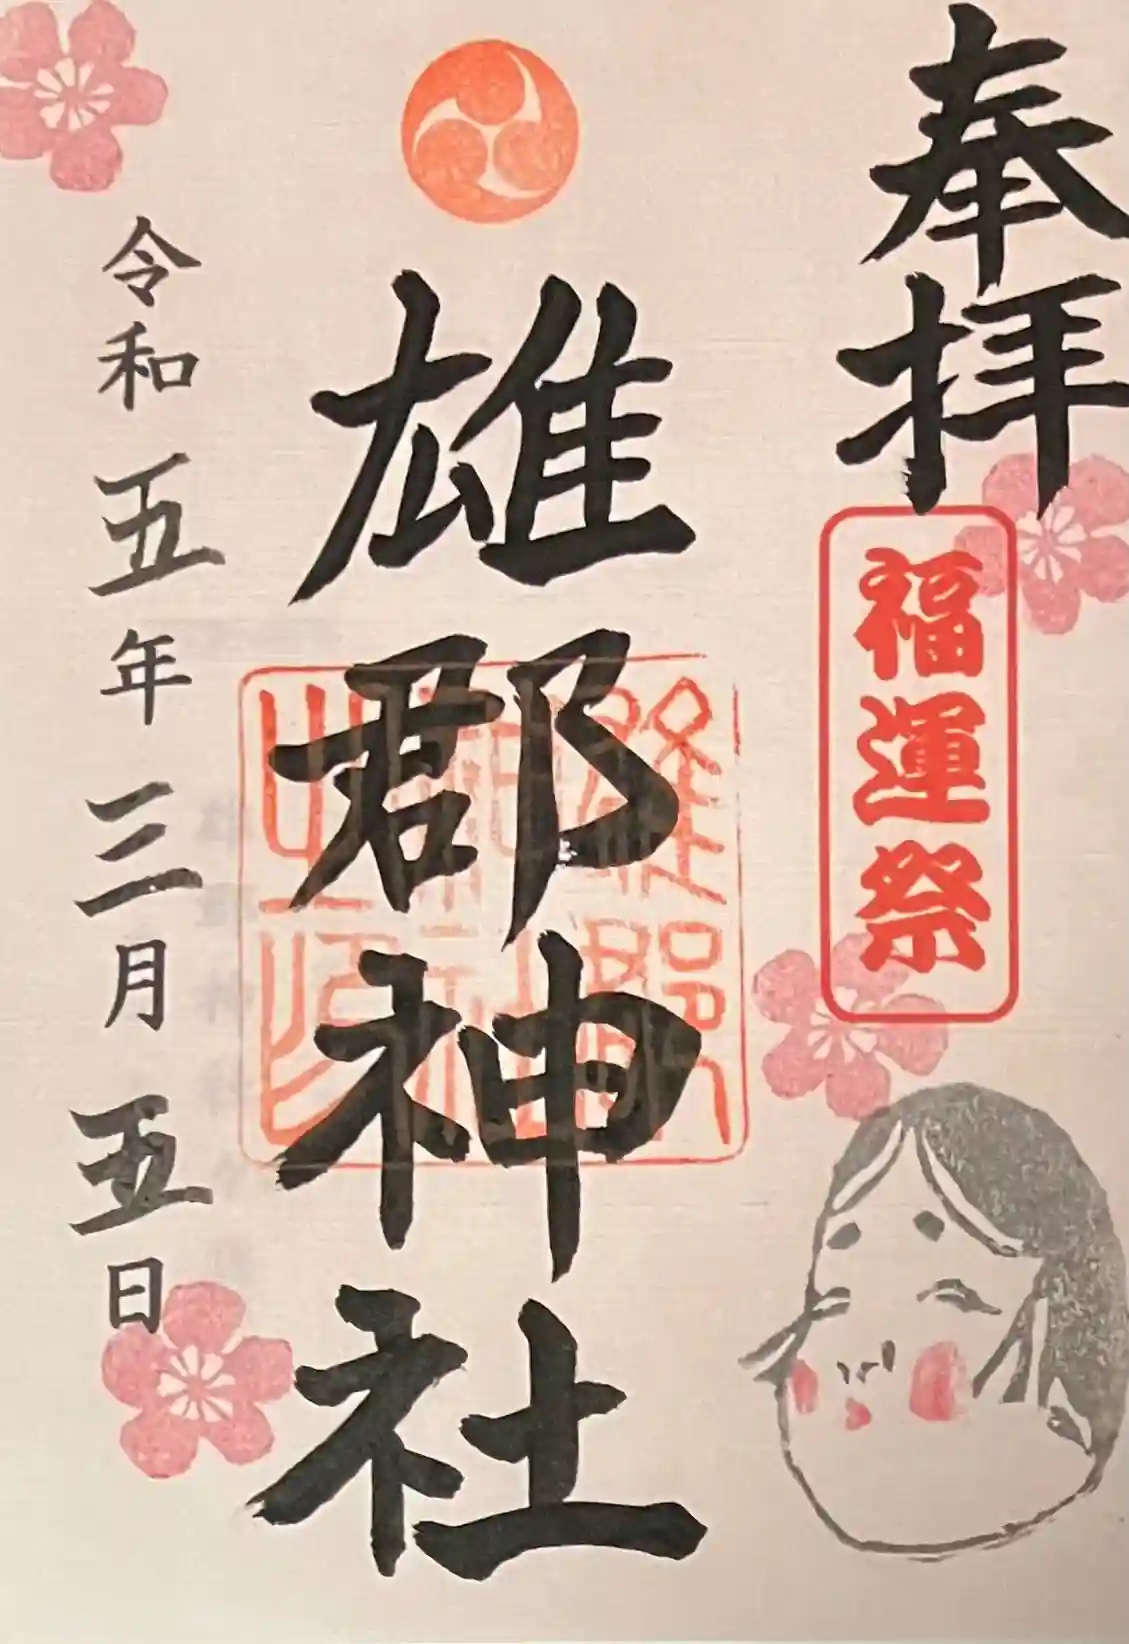 奉拝
福運祭
雄郡神社
雄郡神社之印
令和五年三月五日